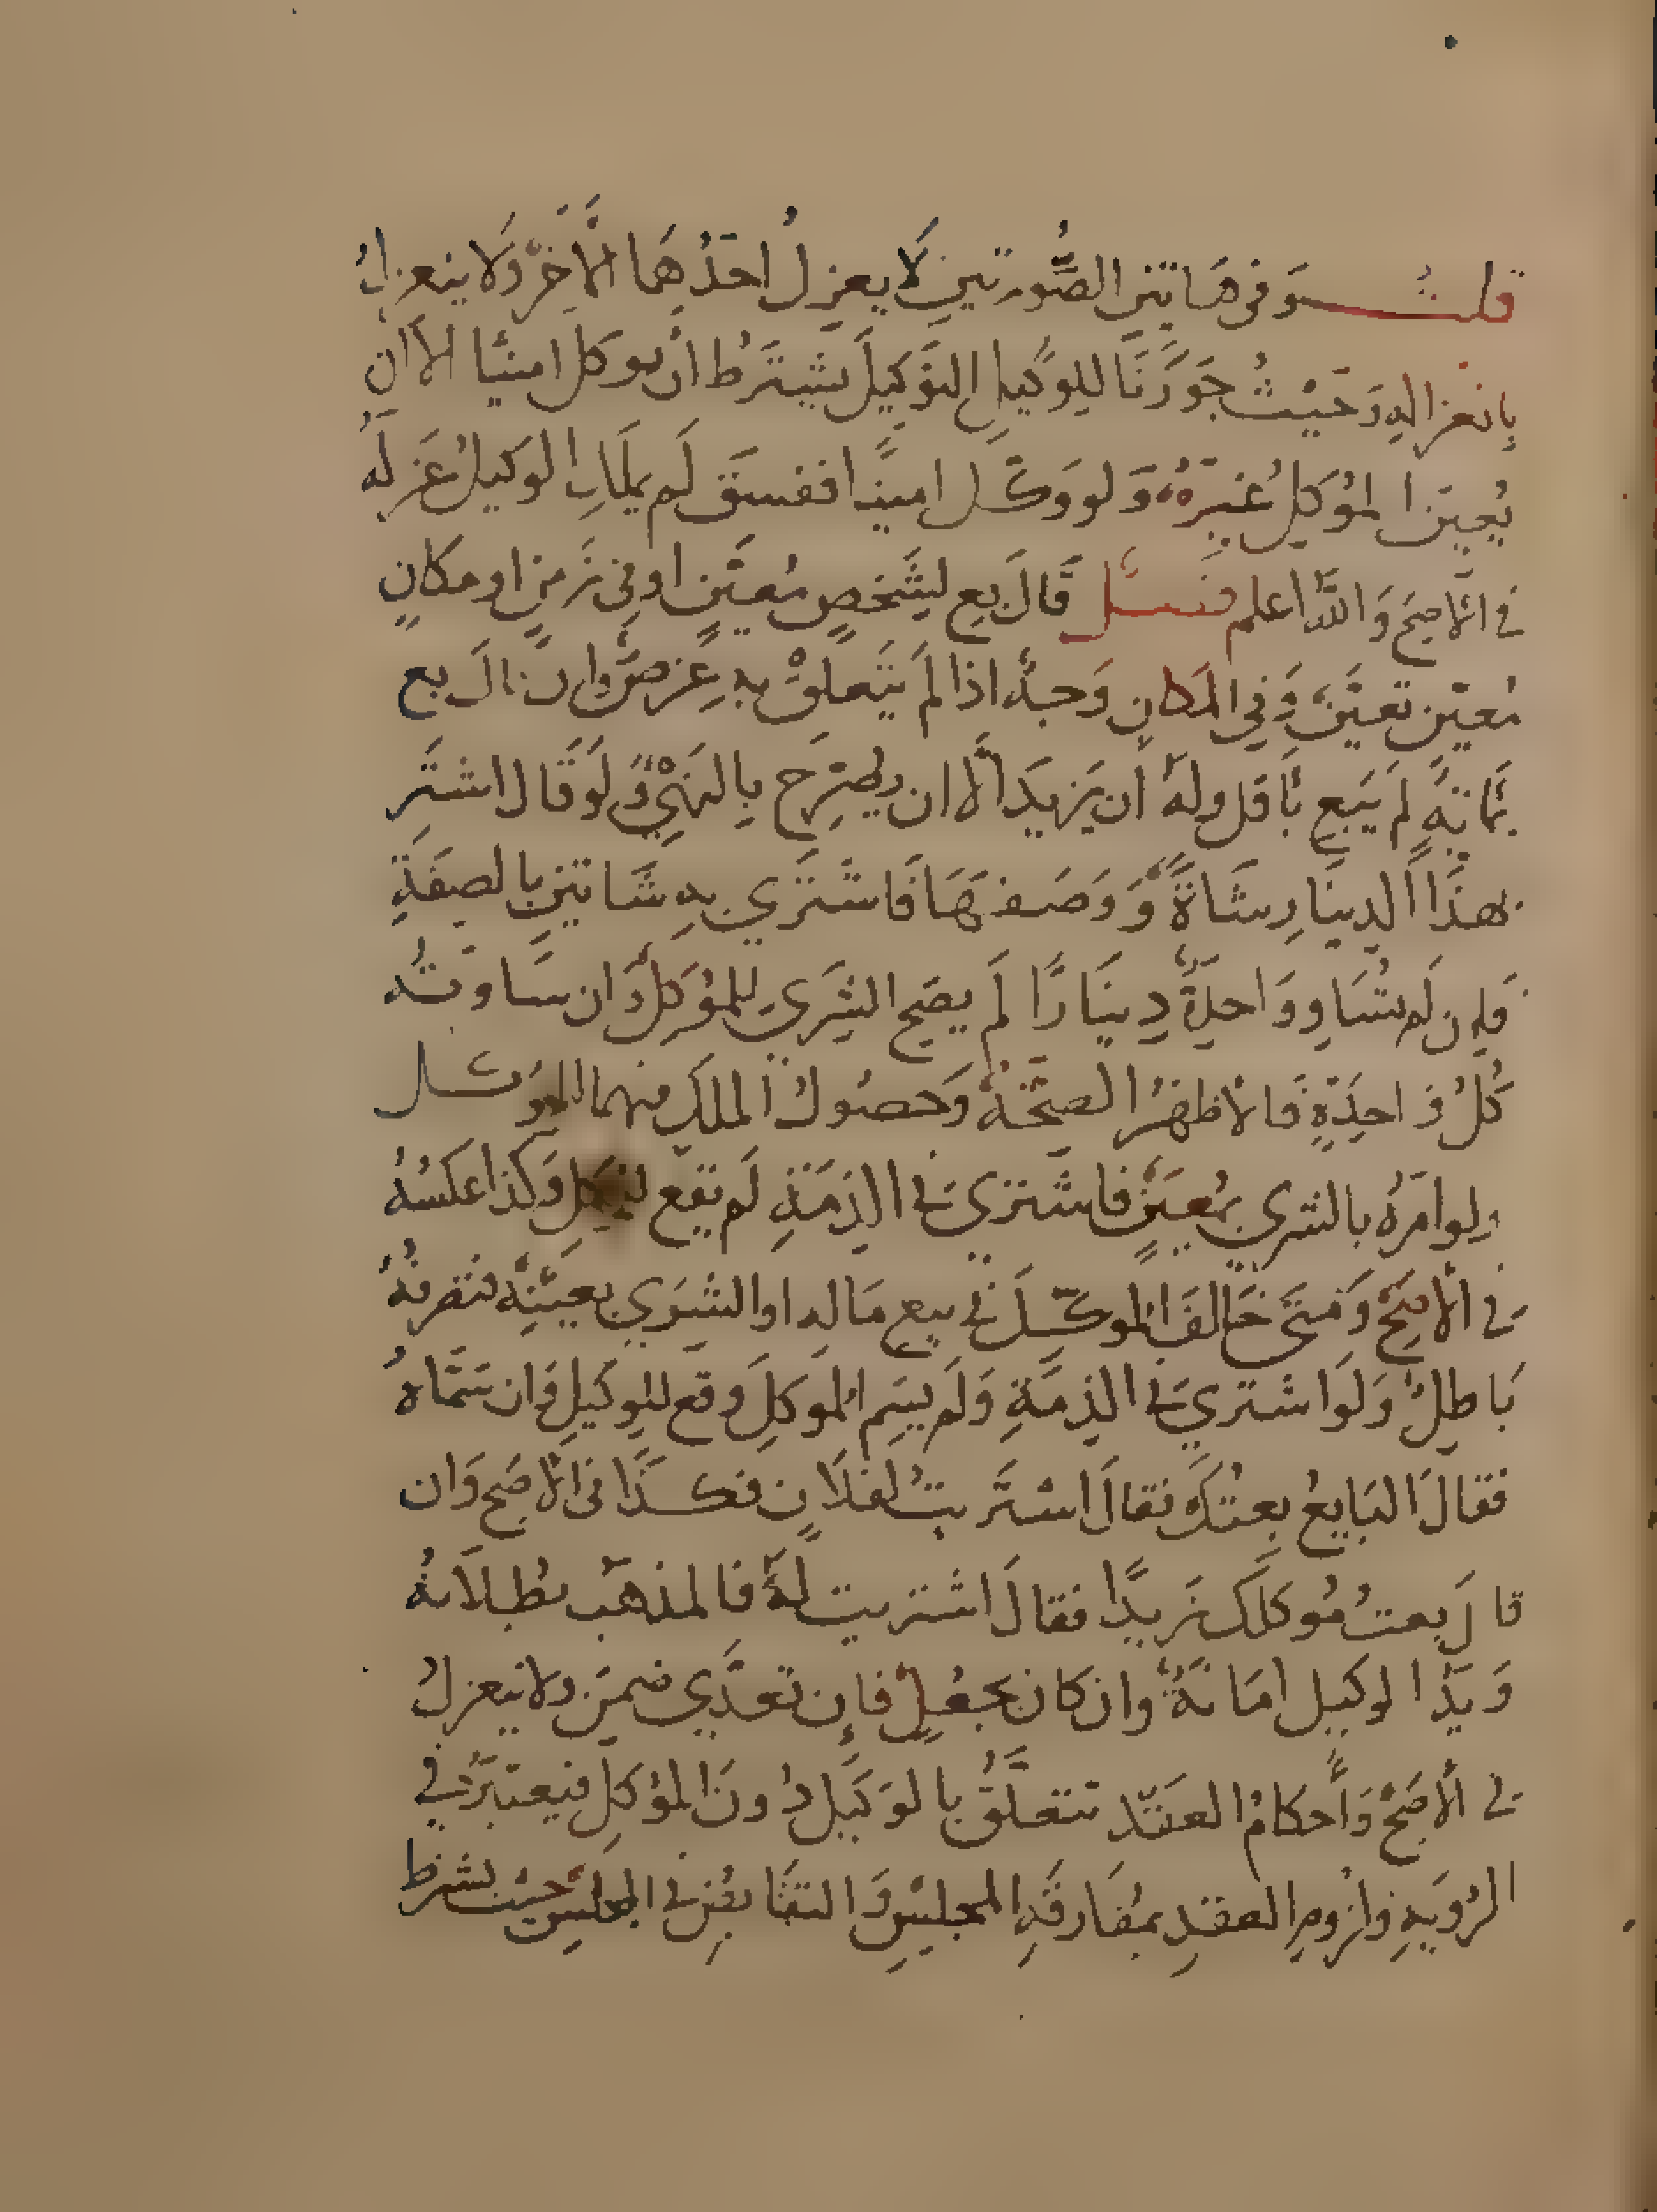 قلت وفي هاتين الصُّورتين لا يعزل احدُهما الآخر ولا ينعزل
بانعزاله وحيث جوزنا للوكيل التوكيل يشترط ان يوكل امينًا الا ان
يُعين الموكل غيره ولو وكل امينا ففسق لم يملك الوكيل عزله
في الاصح والله اعلم فصل قال بع لشخص معين او في زمن او مكان
معين تعين وفي المكان وجه اذا لم يتعلق به غرض وان قال بع
بمائة لم يبع باقل وله ان يزيد الا ان يصرح بالنهي ولو قال اشتر
بهذا الدينار شاة ووصفها فاشتري به شاتين بالصفة
فإن لم تساو واحدة دينارا لم يصح الشري للموكل وان ساوته
كل واحدة فالاظهر الصحة وحصول الملك فيهما للموكل
ولو امره بالشري بمعين فاشتري في الذمة لم يقع للموكل وكذا عكسه
في الاصح ومتي خالف الموكل في بيع ماله او الشري بعينه فتصرفه
باطل ولو اشتري في الذمة ولم يسم الموكل وقع للوكيل وان سماه
فقال البايع بعتك فقال اشتريت لفلان فكذا في الاصح وان
قال بعت موكلك زيدا فقال اشتريت له فالمذهب بطلانه
ويد الوكيل امانة وان كان بجعل فإن تعدي ضمن ولا ينعزل
في الاصح واحكام العقد تتعلق بالوكيل دون الموكل فيعتبر في
الرؤية ولزوم العقد بمفارقة المجلس والتقابض في المجلس حيث يشترط